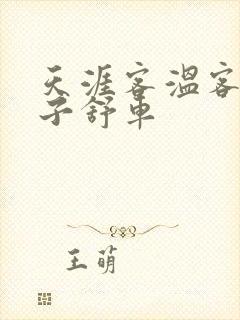 天涯客温客
子舒車
王萌